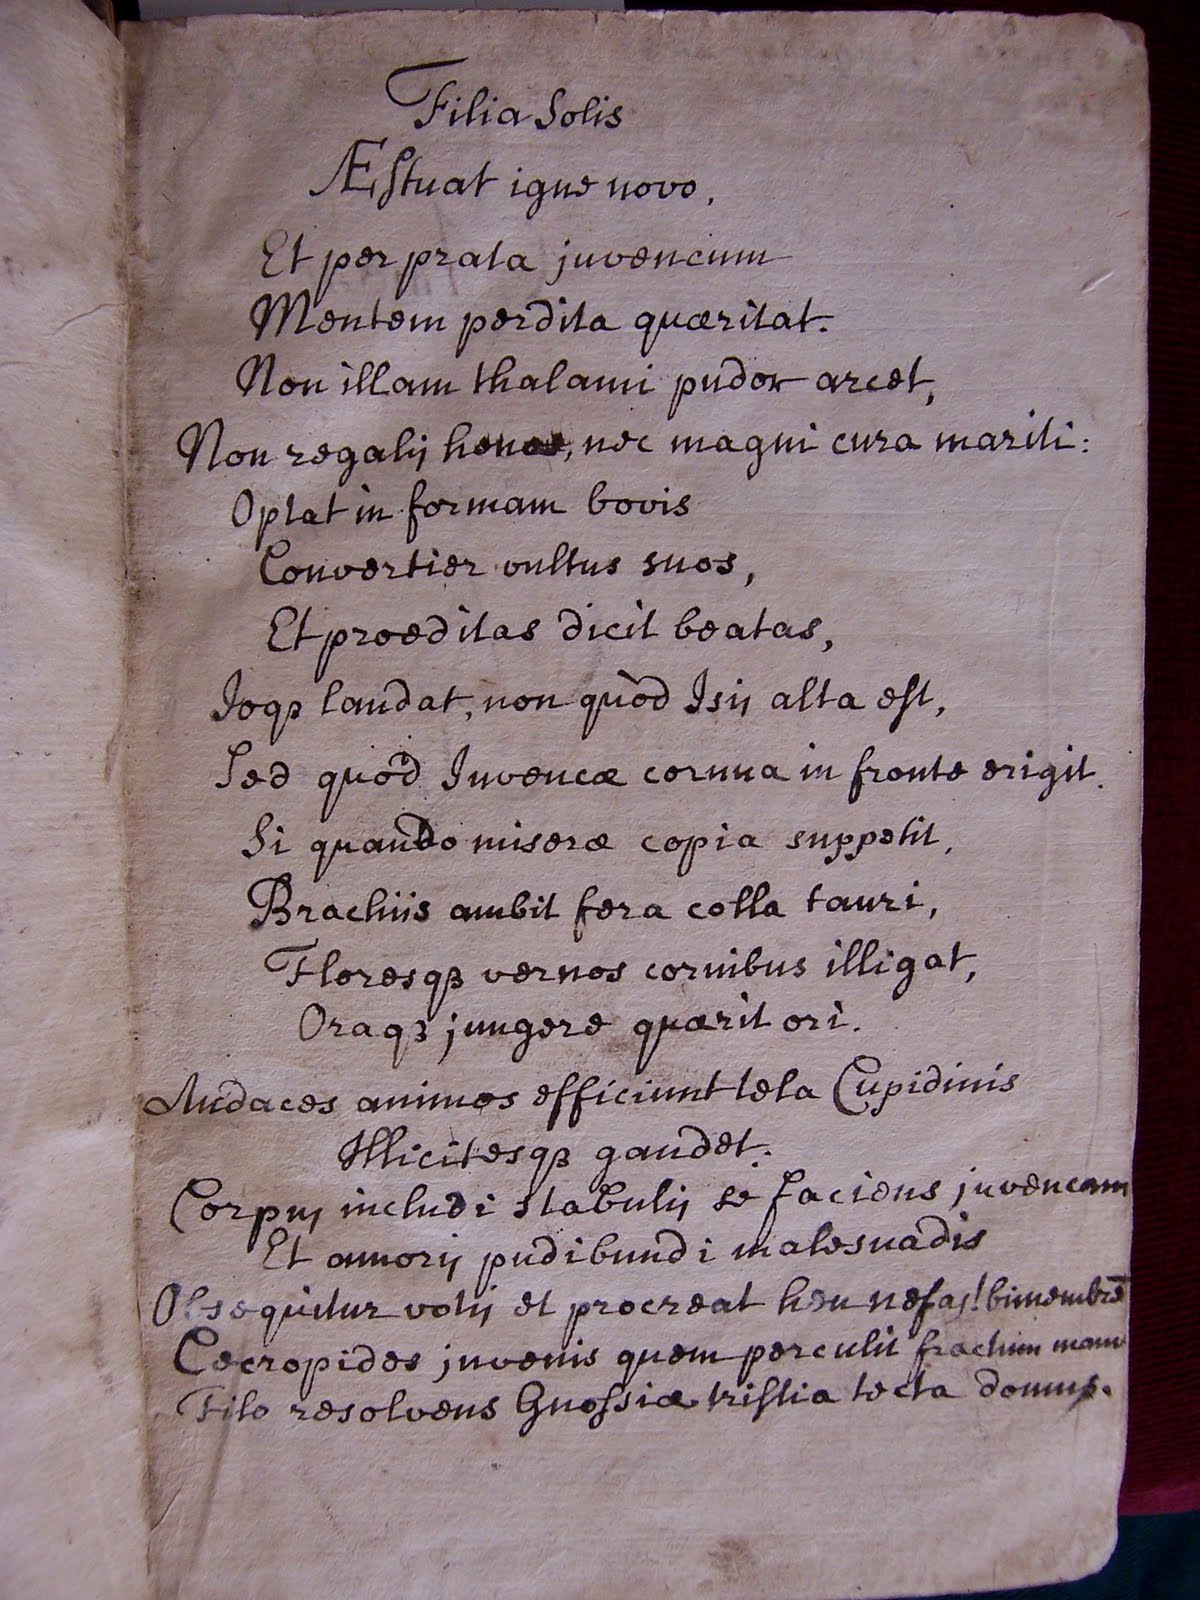 Filia Solis
Æstuat igne novo,
Et per prata juvencum
Mentem perdita quæritat.
Non illam thalami pudor arcet,
Non regalij honos, nec magni cura mariti:
Optat in formam bovis
Convertier vultus suos,
Et proeditas dicit beatas,
Ioqȝ laudat, non quòd Isij alta est,
Sed quòd Iuvencæ cornua in fronte erigit.
Si quando miseræ copia suppetit,
Brachiis ambit fera colla tauri,
Floresqȝ vernos cornibus illigat,
Oraqȝ jungere quærit ori.
Audaces animos efficiunt tela Cupidinis
Illicitesqȝ gaudet.
Corpus includi stabulij se faciens juvencam
Et amorij pudibundi malesuadis
Obsequitur votij et procreat heu nefas! bimembrē
Cecropides juvenis quem perculit fractum manu
Filo resolvens Gnossiæ tristia tecta domus.